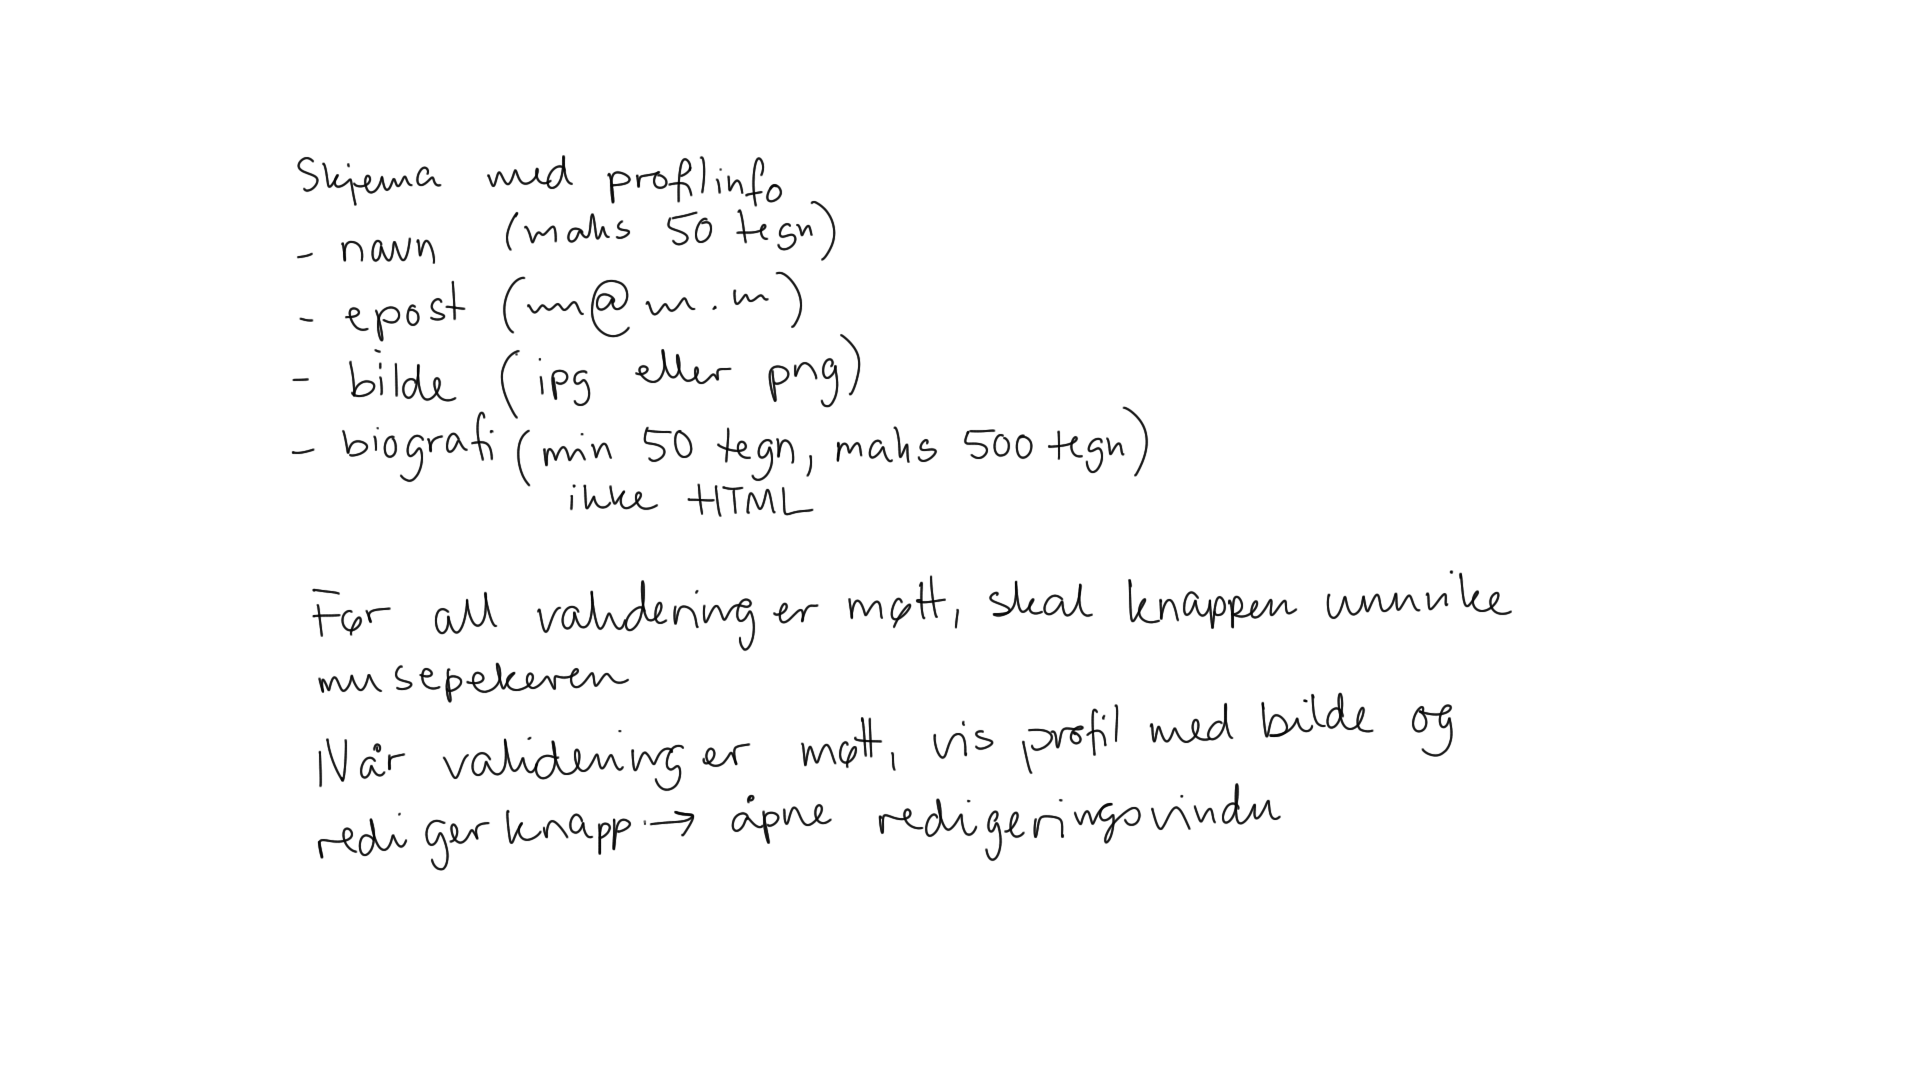 Skjema med profilinfo
- navn (maks 50 tegn)
- epost (mn@m.m)
- bilde (jpg eller png)
- biografi (min 50 tegn, maks 500 tegn)
ikke HTML
Før all validering er møtt, skal knappen unnvike
musepekeren
Når validering er møtt, vis profil med bilde og
rediger knapp → åpne redigeringsvindu